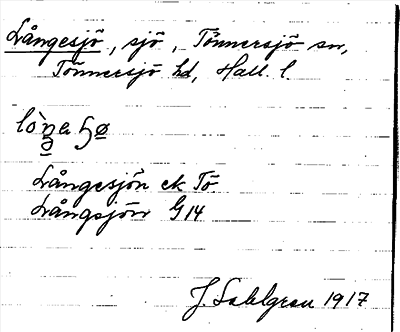 Långesjö, sjö, Tönnersjö sn,
Tönnersjö hd, Hall. l.
Långesjön ek Tö
Långsjön G14
J. Sahlgren 1917